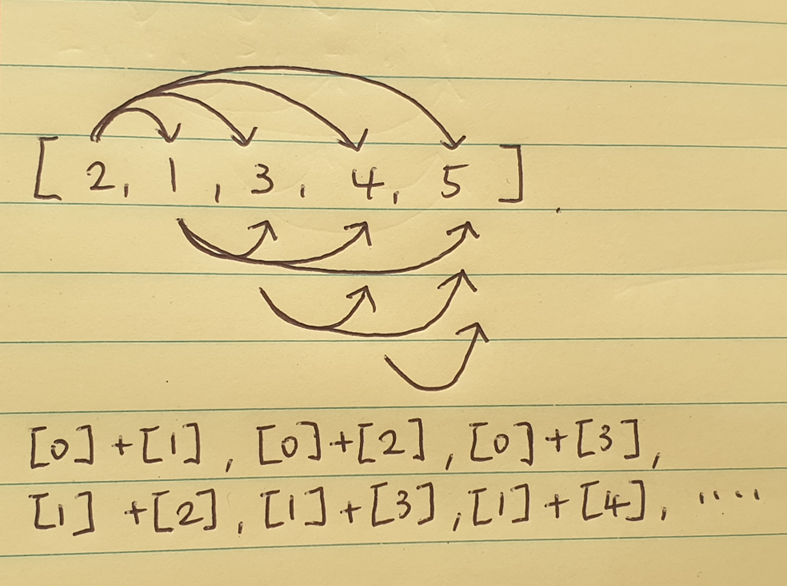 [ 2, 1, 3, 4, 5 ]
[0]+[1], [0]+[2], [0]+[3],
[1]+[2], [1]+[3], [1]+[4], ....